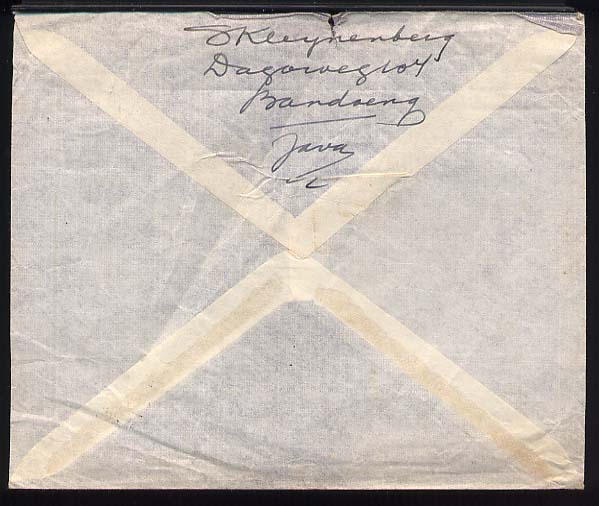 Kleynenberg
Dagoweg 104
Bandoeng
Java